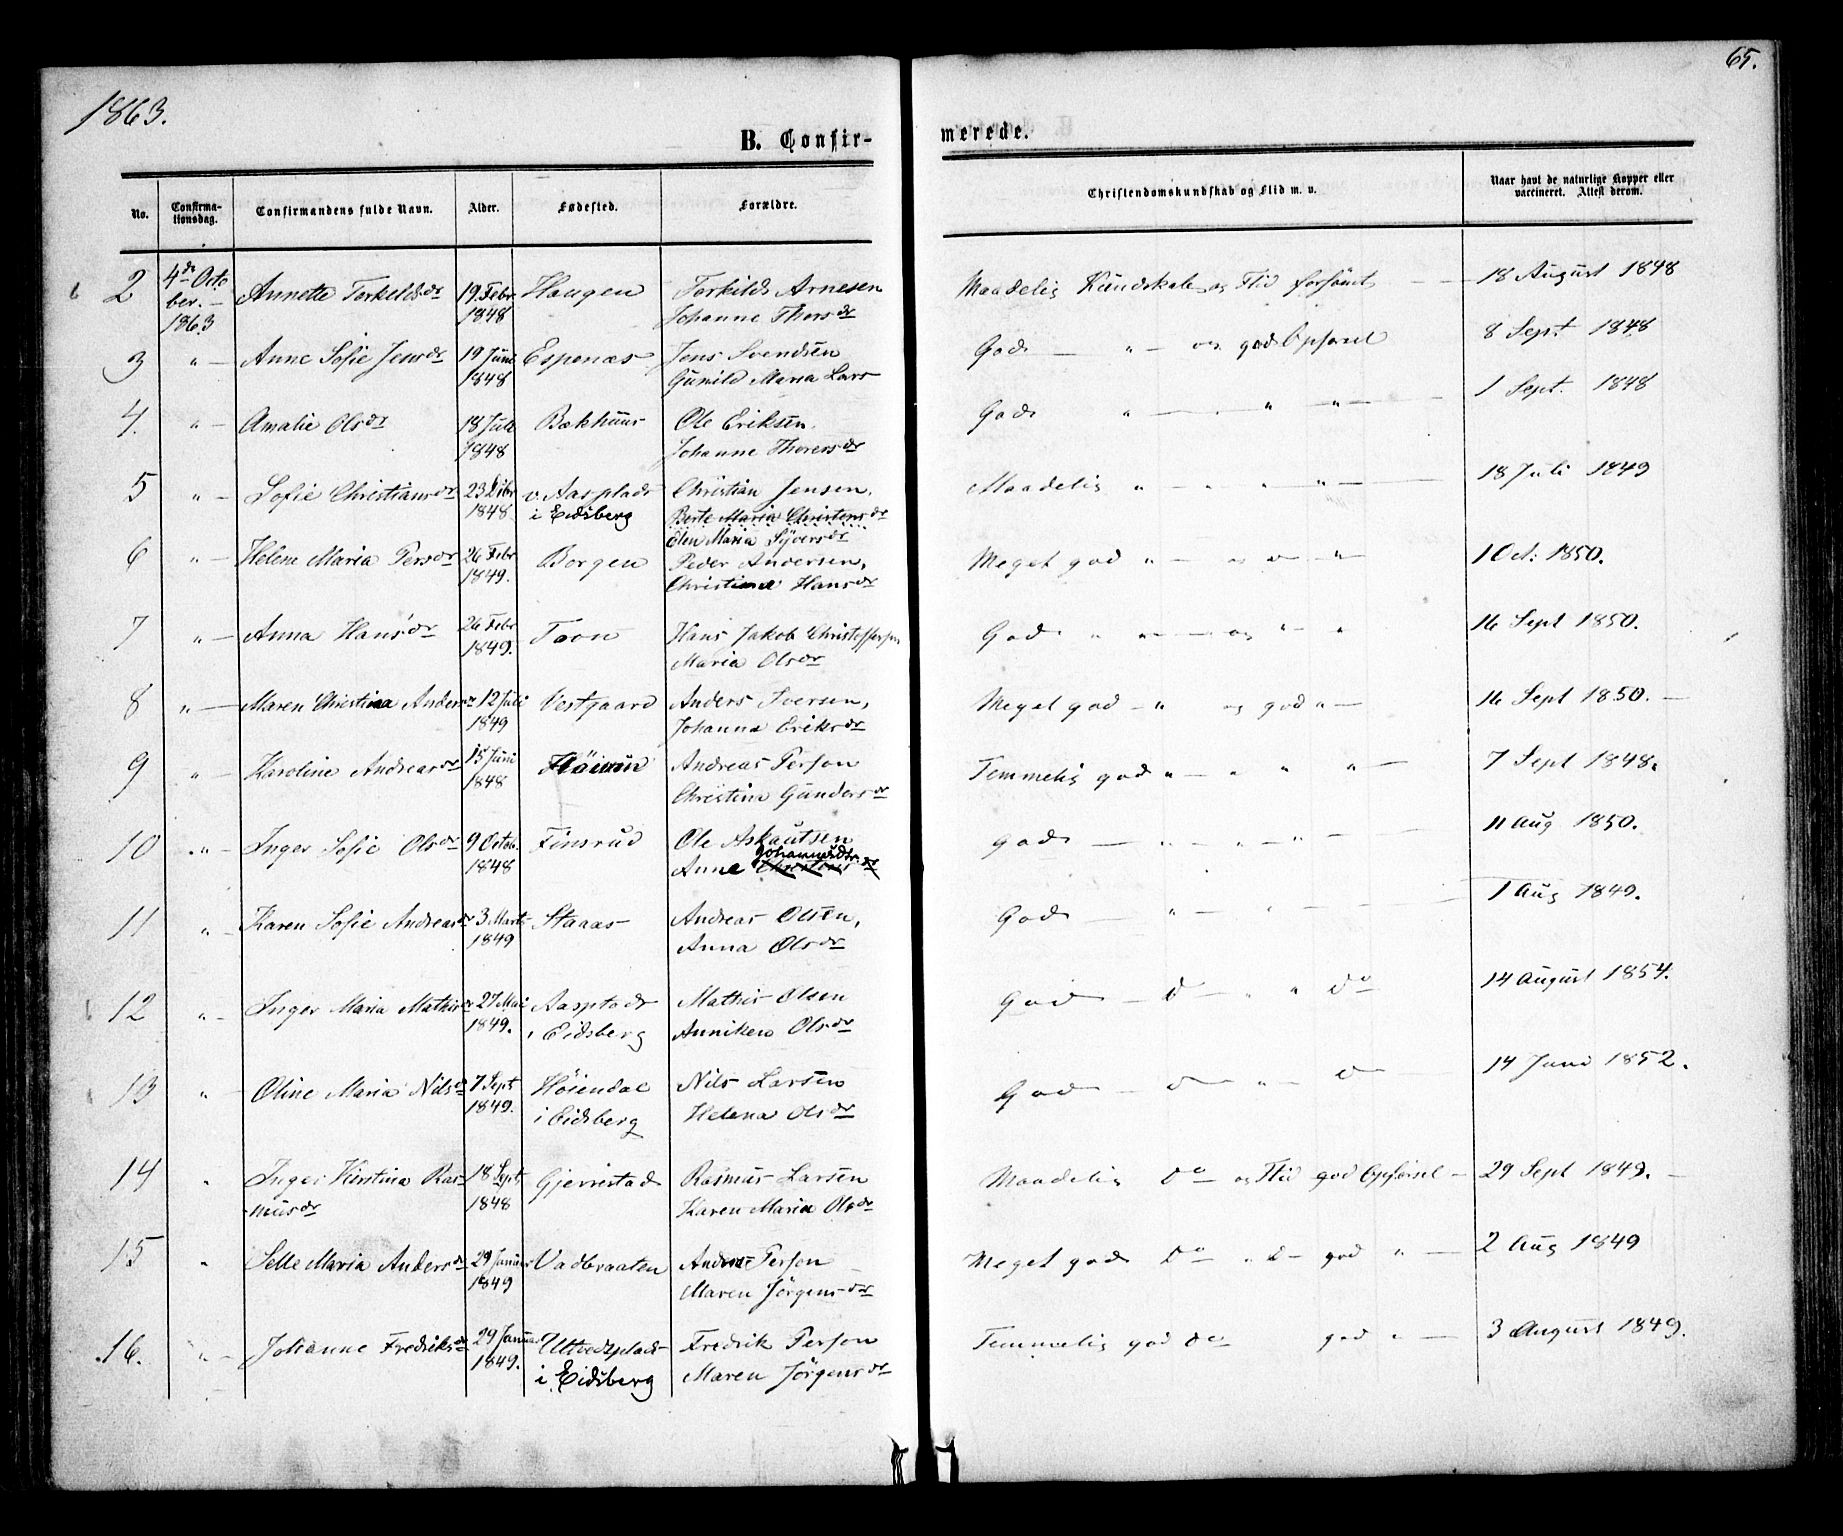 65.
1863.
B. Confir- merede.
No. Confirma- tionsdag. Confirmandens fulde Navn. Alder. Fødested. Forældre. Christendomskundskab og Flid m. v. Naar havt de naturlige Kopper eller vaccineret. Attest derom.
2 4de Octo Annette Torkildsdr 19 Febr Haugen Torkilds Arnesen Maadelig Kundskab og Flid forsömt — 18 August 1848
ber. — 1848 Johanne Thorsdr
1863
3 " — Anne Sofie Jensdr 19 Juni Espenæs Jens Svendsen God — " — og god Opførsel 8 Sept 1848
1848 Gunild Maria Lars
4. " — Amalie Olsdr 18 Juli Bækhuus Ole Eriksen. God " — " " — 1 Sept. 1848
1848 Johanne Thorersdr
5 " — Sofie Christiansdr 23 Dibr v. Aasplads Christian Jensen. Maadelig " — " — " " — 18 Juli 1849
1848. i Eidsberg Berte Maria Christensdr
Elen Maria Syversdr
6 " — Helene Maria Persdr 26 Febr Borgen Peder Andersen, Meget god " — " — " — 1 Oct: 1850.
1849. Christiane Hansdr
7 " — Anna Hansdr 26 Febr Toon Hans Jakob Christoffersen God " " — og " — " 16 Sept 1850.
1849. Maria Olsdr
8 " — Maren Christina Andersdr 12 Juli Vestgaard Anders Iversen, Meget god — " og god " — 16 Sept 1850. —
1849 Johanna Eriksdr
9 " — Karoline Andreasdr 15 Juni Andreas Person Temmelig god " — " " " — 7 Sept 1848.
1848 Christina Gundersdr
10 " — Inger Sofie Olsdr 9 Octob. Finsrud Ole Askautsen God — " — " — " — 11 Aug 1850.
1848 Anne Johannesdtr.
11 " — Karen Sofie Andreasdr 3 Marts Staaas Andreas Olsen, God — " — " — 1 Aug 1849.
1849 Anna Olsdr
12 " — Inger Maria Mathisdr 27 Mai Aasplads Mathis Olsen God — D — " " Do 14 August 1854.
1849. i Eidsberg Anniken Olsdr
13 " — Oline Maria Nilsdr 7 Sept Høiendal Nils Larsen God — D " " D — 14 Juni 1852.
1849. i Eidsberg Helena Olsdr
14 " Inger Kirstina Ras- 18 Sept Gjerrestad Rasmus Larsen Maadelig Do og Flid god Opførsel — 29 Sept 1849. —
musdr 1848 Karen Maria Olsdr
15 " Selle Maria Andersdr 29 Januar Vadbraaten Anders Person Meget god Do " D — god " — 2 Aug 1849
1849 Maren Jörgensdr
16. " — Johanne Fredriksdr 29 Janua Fredrik Person Temmelig god do god " — 3 August 1849.
1849. i Eidsberg Maren Jörgensdr